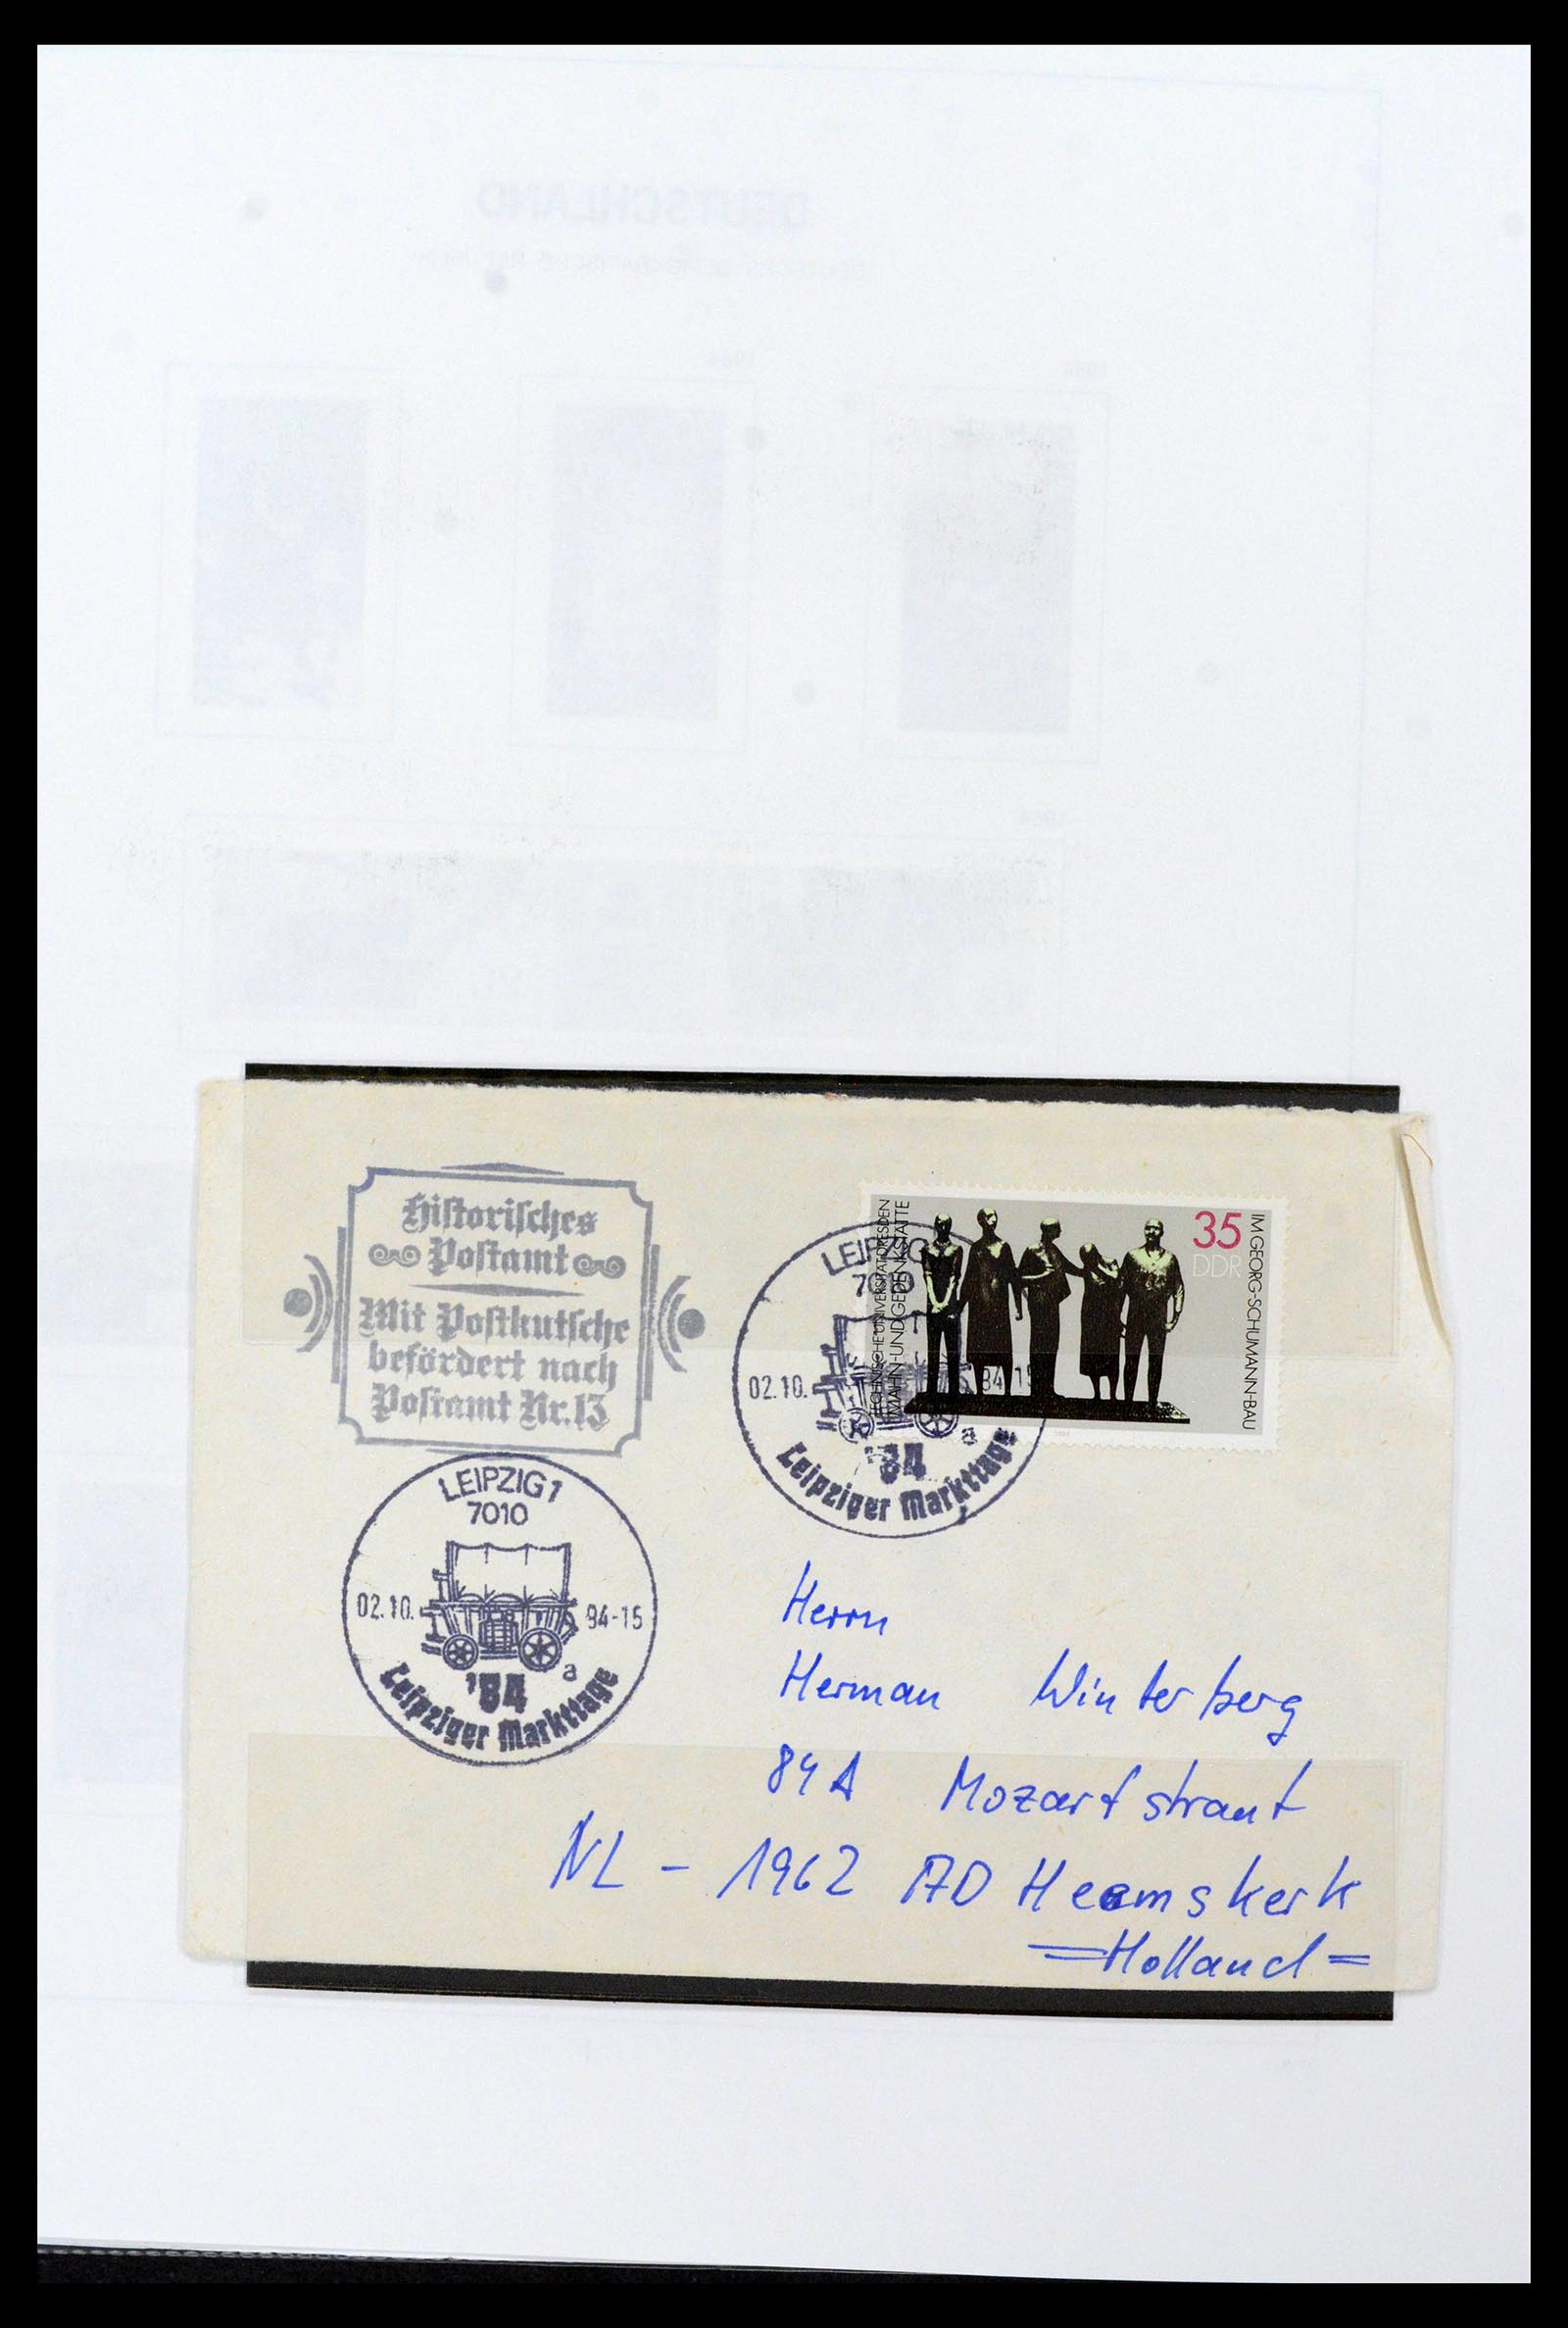 DEUTSCHLAND
Historisches
Postamt
Mit Postkutsche
befördert nach
Postamt Nr.13
LEIPZIG 1
7010
02.10. 84-15
a
'84
Leipziger Markttage
TECHNISCHE UNIVERSITÄT DRESDEN
MAHN- UND GEDENKSTÄTTE
35
DDR
IM GEORG-SCHUMANN-BAU
LEIPZIG
7010
02.10. 84-15
a
'84
Leipziger Markttage
Herrn
Herman Winterberg
84A Mozartstraat
NL - 1962 AD Heemskerk
=Holland=